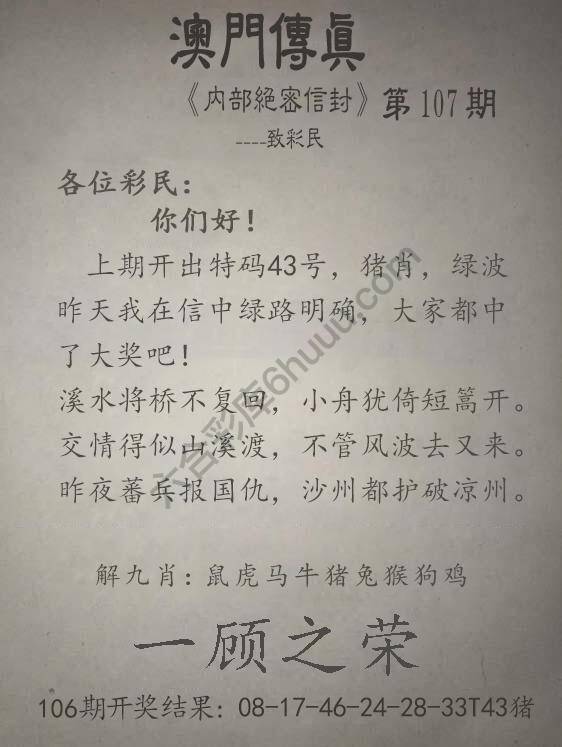 澳門傳眞
《内部絕密信封》第107期
----致彩民
各位彩民：
你们好！
上期开出特码43号，猪肖，绿波
昨天我在信中绿路明确，大家都中
了大奖吧！
溪水将桥不复回，小舟犹倚短篙开。
交情得似山溪渡，不管风波去又来。
昨夜蕃兵报国仇，沙州都护破凉州。
解九肖：鼠虎马牛猪兔猴狗鸡
一顾之荣
106期开奖结果：08-17-46-24-28-33T43猪
六合彩库6huuu.com